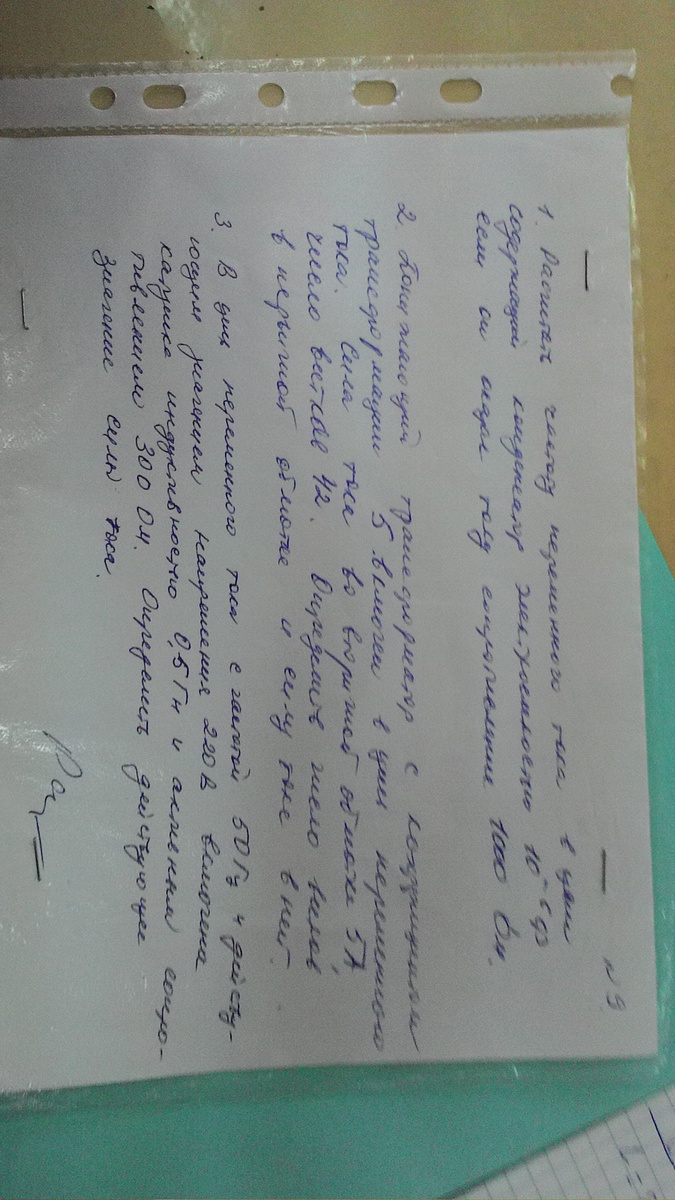 N 9
1. Расчитать частоту переменного тока в цепи
содержащей конденсатор электроемкостью 10⁻⁶ Ф
если он оказ. току сопротивление 1000 Ом.
2. Понижающий трансформатор с коэффициентом
трансформации 5 включен в цепь переменного
тока. Сила тока во вторичной обмотке 5А
число витков 42. Определить число витков
в первичной обмотке и силу тока в ней.
3. В цепь переменного тока с частотой 50 Гц и действу-
ющим значением напряжения 220 В включена
катушка индуктивностью 0,5 Гн и активным сопро-
тивлением 300 Ом. Определить действующее
значение силы тока.